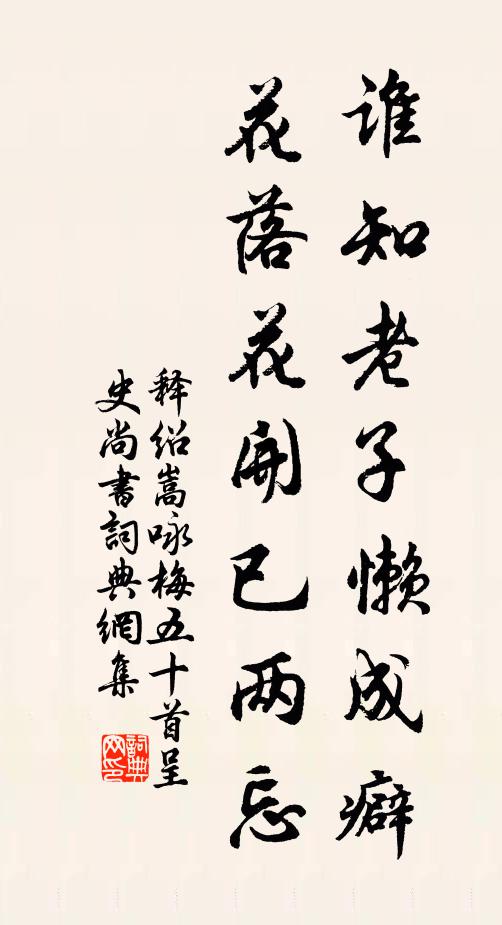 谁知老子懒成癖
花落花开已两忘
释绍嵩咏梅五十首呈
史尚書詞典網集
詞典
网印